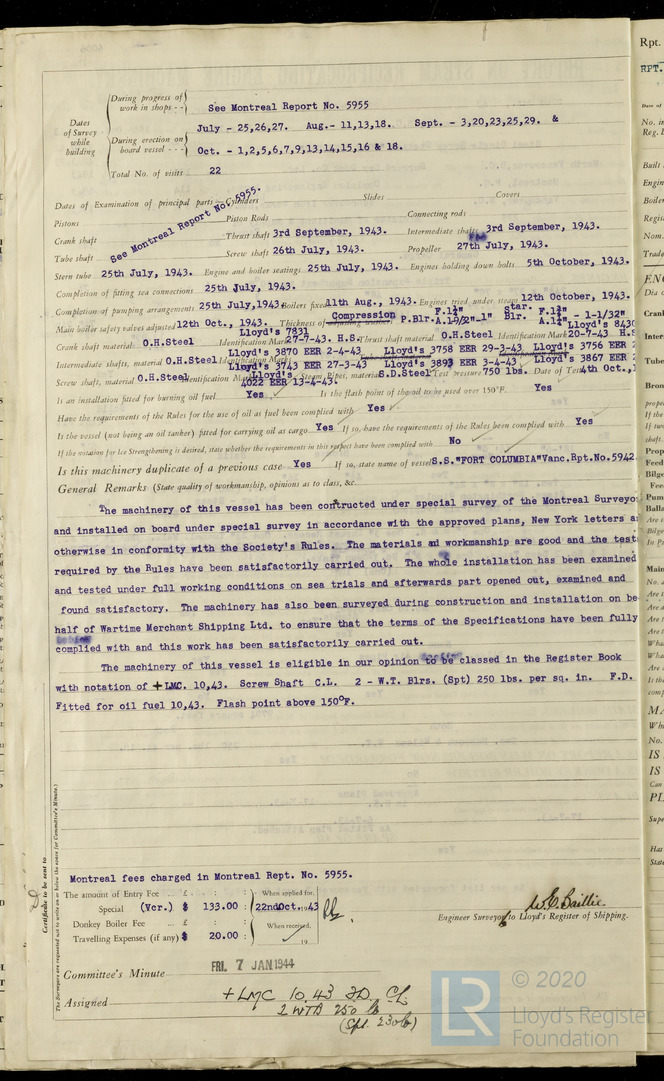 During progress of work in shops - - See Montreal Report No. 5955
Dates of Survey while building
During erection on board vessel - - - July - 25,26,27. Aug.- 11,13,18. Sept. - 3,20,23,25,29. &
Oct. - 1,2,5,6,7,9,13,14,15,16 & 18.
Total No. of visits 22
Dates of Examination of principal parts—Cylinders Slides Covers
See Montreal Report No. 5955.
Pistons Piston Rods Connecting rods
Crank shaft Thrust shaft 3rd September, 1943. Intermediate shafts 3rd September, 1943.
Tube shaft Screw shaft 26th July, 1943. Propeller 27th July, 1943.
Stern tube 25th July, 1943. Engine and boiler seatings 25th July, 1943. Engines holding down bolts 5th October, 1943.
Completion of fitting sea connections 25th July, 1943.
Completion of pumping arrangements 25th July,1943. Boilers fixed 11th Aug., 1943. Engines tried under steam 12th October, 1943.
Main boiler safety valves adjusted 12th Oct., 1943. Thickness of Compression P.Blr. F.1¼" A.1-9/32"-1" Star. Blr. F.1¼" A.1¼" - 1-1/32"
Crank shaft material O.H.Steel Identification Mark Lloyd's 7831 27-7-43. H.S. Thrust shaft material O.H.Steel Identification Mark Lloyd's 8430 20-7-43 H.S
Intermediate shafts, material O.H.Steel Identification Marks Lloyd's 3870 EER 2-4-43 Lloyd's 3758 EER 29-3-43 Lloyd's 3756 EER 2
Lloyd's 3743 EER 27-3-43 Lloyd's 3893 EER 3-4-43 Lloyd's 3867 EER 2
Screw shaft, material O.H.Steel Identification Mark Lloyd's 4022 EER 13-4-43. Steam Pipes, material S.D.Steel Test pressure 750 lbs. Date of Test 4th Oct.,1
Is an installation fitted for burning oil fuel Yes Is the flash point of the oil to be used over 150°F. Yes
Have the requirements of the Rules for the use of oil as fuel been complied with Yes
Is the vessel (not being an oil tanker) fitted for carrying oil as cargo Yes If so, have the requirements of the Rules been complied with Yes
If the notation for Ice Strengthening is desired, state whether the requirements in this respect have been complied with No
Is this machinery duplicate of a previous case Yes If so, state name of vessel S.S."FORT COLUMBIA"Vanc.Rpt.No.5942
General Remarks (State quality of workmanship, opinions as to class, &c.
The machinery of this vessel has been contructed under special survey of the Montreal Surveyo
and installed on board under special survey in accordance with the approved plans, New York letters a
otherwise in conformity with the Society's Rules. The materials ad workmanship are good and the test
required by the Rules have been satisfactorily carried out. The whole installation has been examined
and tested under full working conditions on sea trials and afterwards part opened out, examined and
found satisfactory. The machinery has also been surveyed during construction and installation on be-
half of Wartime Merchant Shipping Ltd. to ensure that the terms of the Specifications have been fully
complied with and this work has been satisfactorily carried out.
The machinery of this vessel is eligible in our opinion to be classed in the Register Book
with notation of +LMC. 10,43. Screw Shaft C.L. 2 - W.T. Blrs. (Spt) 250 lbs. per sq. in. F.D.
Fitted for oil fuel 10,43. Flash point above 150°F.
Certificate to be sent to
The Surveyors are requested not to write on or below the space for Committee's Minute.
Montreal fees charged in Montreal Rept. No. 5955.
The amount of Entry Fee ... £ : : When applied for,
Special (Vcr.) $ 133.00 : 22nd Oct. 1943
Donkey Boiler Fee ... £ : : When received,
Travelling Expenses (if any) $ 20.00 : 19
W.E. Baillie
Engineer Surveyor to Lloyd's Register of Shipping.
Committee's Minute FRI. 7 JAN 1944
Assigned + LMC 10.43 FD. CL
2 WTB 250 lb
(Spt. 230 lb)
LR
© 2020
Lloyd's Register
Foundation